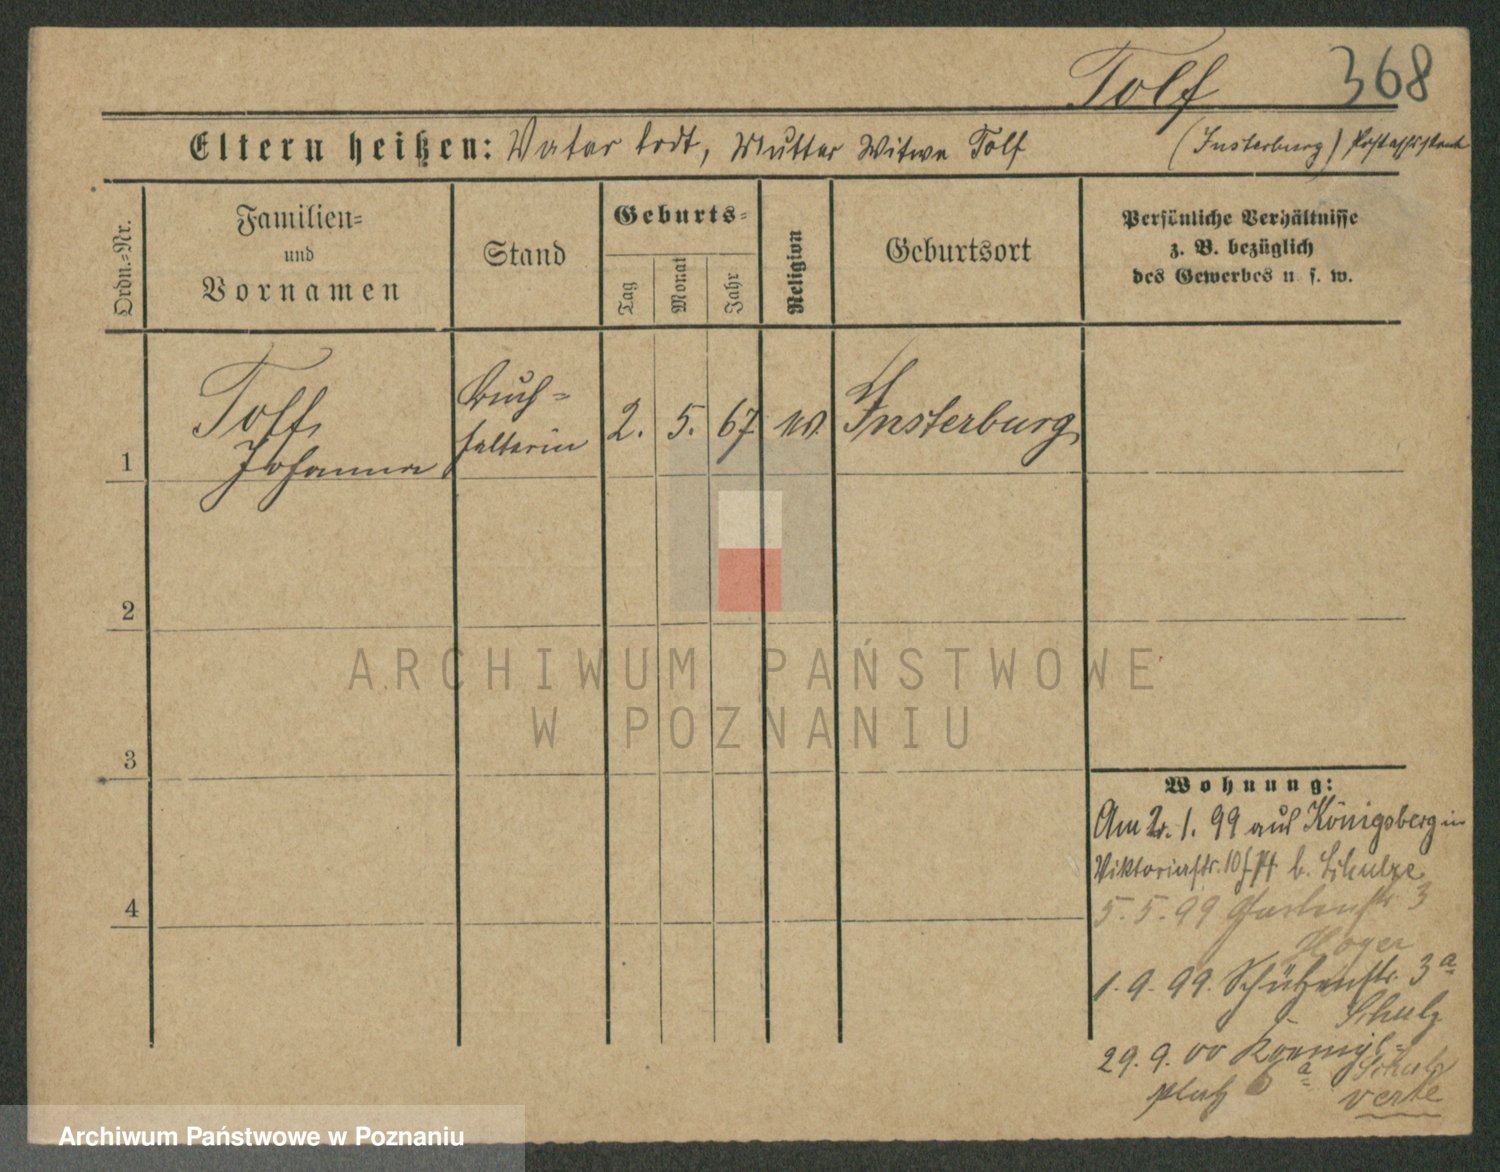 Tolf 368
Eltern heißen: Vater todt, Mutter Witwe Tolf
(Insterburg)
Ordn.=Nr.
Familien=
und
Vornamen
Stand
Geburts=
Tag
Monat
Jahr
Religion
Geburtsort
Persönliche Verhältnisse
z. B. bezüglich
des Gewerbes u. s. w.
Tolf,
Johanna
Buch=
halterin
2. 5. 67
Insterburg
1
2
3
4
ARCHIWUM PAŃSTWOWE
W POZNANIU
Wohnung:
Am 2. 1. 99 aus Königsberg in
Viktoriastr. 10 b. Schulze
5. 5. 99 Gartenstr. 3
Hoyer
1. 9. 99. Schützenstr. 3a
Schulz
29. 9. 00
platz 6a Schulz
verte
Archiwum Państwowe w Poznaniu